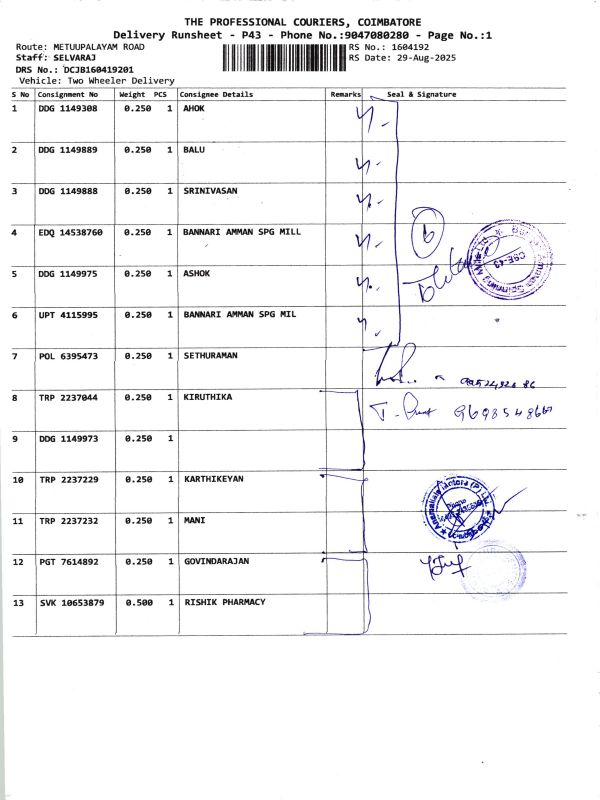 THE PROFESSIONAL COURIERS, COIMBATORE
Delivery Runsheet - P43 - Phone No.:9047080280 - Page No.:1
Route: METUUPALAYAM ROAD RS No.: 1604192
Staff: SELVARAJ RS Date: 29-Aug-2025
DRS No.: DCJB160419201
Vehicle: Two Wheeler Delivery
S No Consignment No Weight PCS Consignee Details Remarks Seal & Signature
1 DDG 1149308 0.250 1 AHOK
2 DDG 1149889 0.250 1 BALU
3 DDG 1149888 0.250 1 SRINIVASAN
4 EDQ 14538760 0.250 1 BANNARI AMMAN SPG MILL
6
5 DDG 1149975 0.250 1 ASHOK
6 UPT 4115995 0.250 1 BANNARI AMMAN SPG MIL
7 POL 6395473 0.250 1 SETHURAMAN
8 TRP 2237044 0.250 1 KIRUTHIKA
9 DDG 1149973 0.250 1
10 TRP 2237229 0.250 1 KARTHIKEYAN
11 TRP 2237232 0.250 1 MANI
12 PGT 7614892 0.250 1 GOVINDARAJAN
13 SVK 10653879 0.500 1 RISHIK PHARMACY